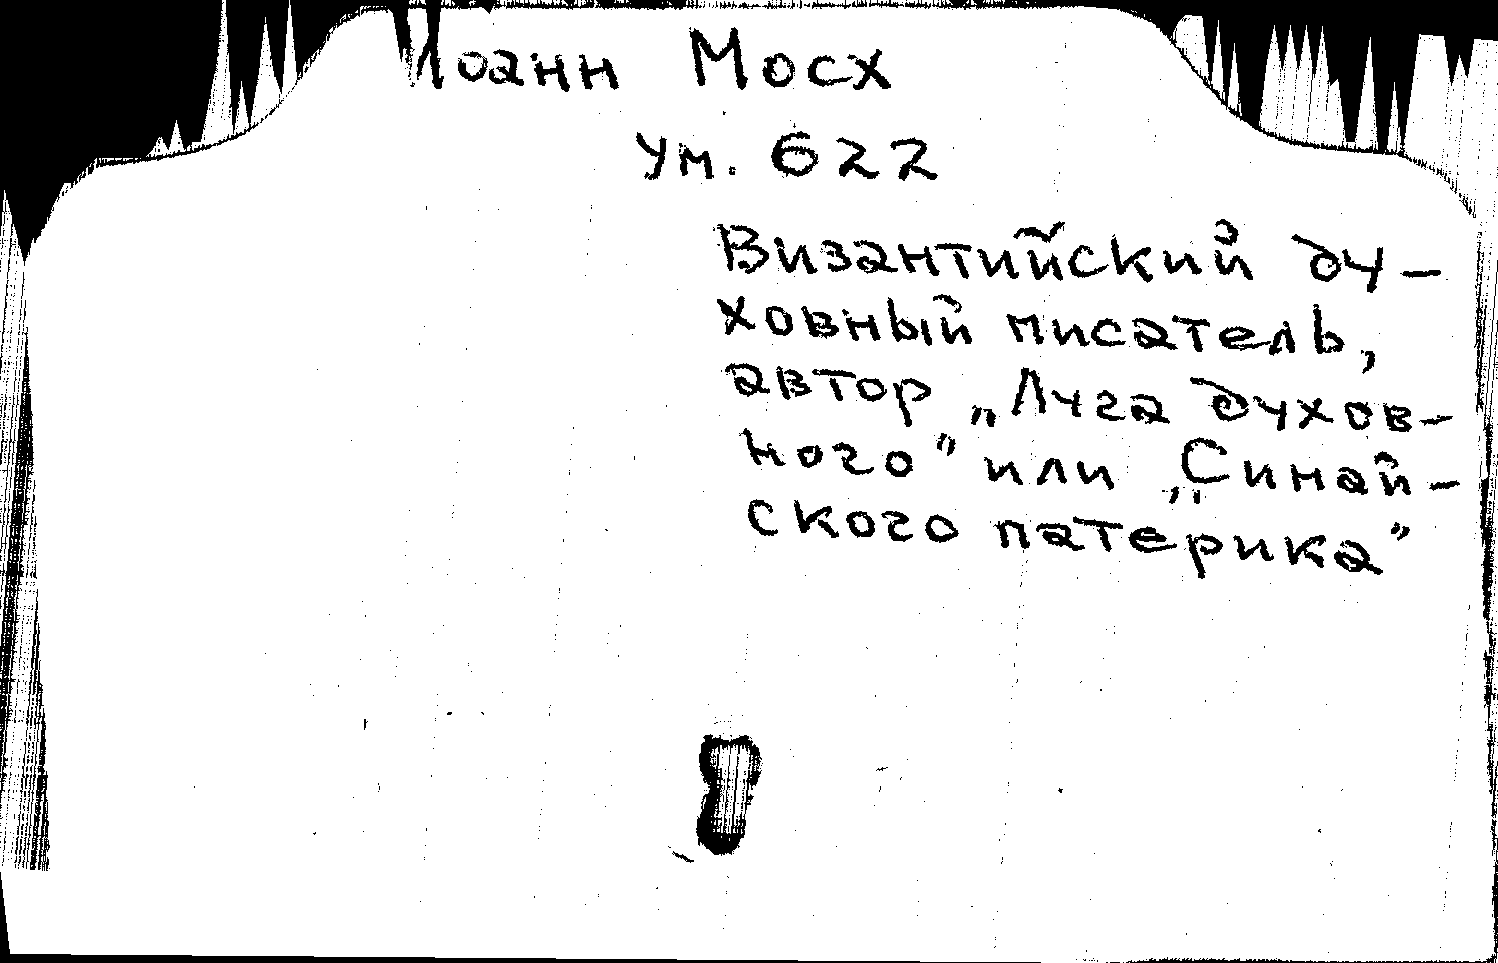 Иоанн Мосх
ум. 622
Византийский ду-
ховный писатель,
автор „Луга духов-
ного" или „Синай-
ского патерика"